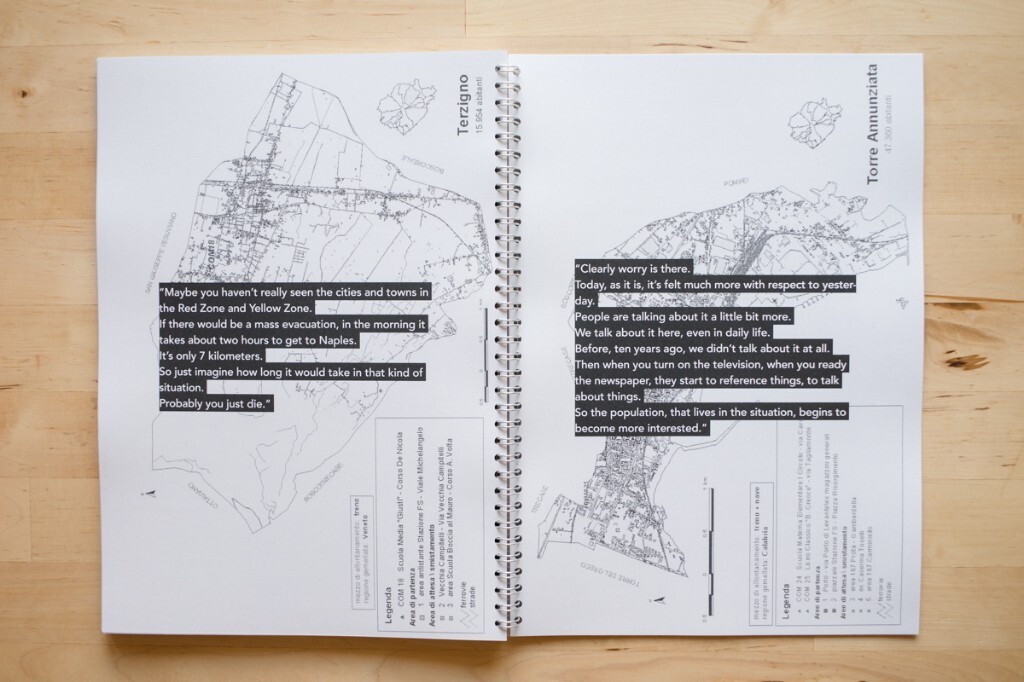 Terzigno
15.954 abitanti
BOSCOREALE
SAN GIUSEPPE VESUVIANO
"Maybe you haven't really seen the cities and towns in
the Red Zone and Yellow Zone.
If there would be a mass evacuation, in the morning it
takes about two hours to get to Naples.
It's only 7 kilometers.
So just imagine how long it would take in that kind of
situation.
Probably you just die."
OTTAVIANO
BOSCOTRECASE
mezzo di allontanamento: treno
regione gemellata: Veneto
Legenda
COM 18 Scuola Media "Giusti" - Corso De Nicola
Area di partenza
1 area antistante Stazione FS - Viale Michelangelo
Area di attesa \ smistamento
2 Vecchia Campitelli - Via Vecchia Campitelli
3 area Scuola Boccia al Mauro - Corso A. Volta
ferrovie
strade
Torre Annunziata
47.360 abitanti
POMPEI
"Clearly worry is there.
Today, as it is, it's felt much more with respect to yester-
day.
People are talking about it a little bit more.
We talk about it here, even in daily life.
Before, ten years ago, we didn't talk about it at all.
Then when you turn on the television, when you ready
the newspaper, they start to reference things, to talk
about things.
So the population, that lives in the situation, begins to
become more interested."
TRECASE
TORRE DEL GRECO
mezzo di allontanamento: treno + nave
regione gemellata: Calabria
Legenda
COM 24 Scuola Materna Elementare I Circolo - via
COM 25 Liceo Classico "B. Croce" - via Tagliamonte
Area di partenza
Porto - via Porto di Levante
piazzale Stazione FS - Piazza Risorgimento
Area di attesa \ smistamento
ferrovie
strade